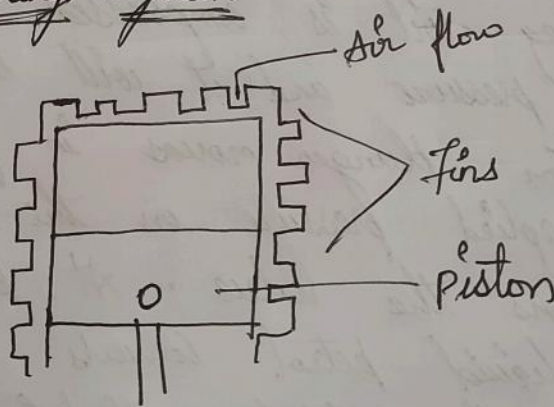 Air flow
Fins
Piston